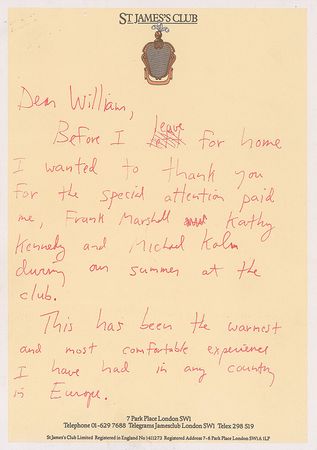 ST JAMES'S CLUB
Dear William,
Before I leave for home
I wanted to thank you
for the special attention paid
me, Frank Marshall Kathy
Kennedy and Michael Kahn
during our summer at the
club.
This has been the warmest
and most comfortable experience
I have had in any country
in Europe.
7 Park Place London SW1
Telephone 01-629 7688 Telegrams Jamesclub London SW1 Telex 298 519
St James's Club Limited Registered in England No 1411273 Registered Address 7-8 Park Place London SW1A 1LP